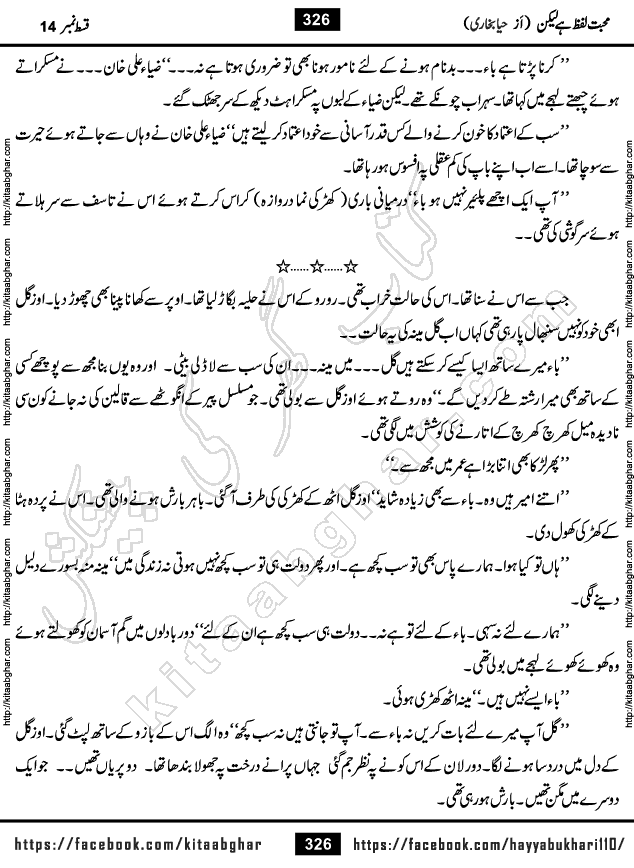 محبت لفظ ہے لیکن (از حیا بخاری) 326 قسط نمبر 14
’’کرنا پڑتا ہے باء۔۔۔بدنام ہونے کے لئے نامور ہونا بھی تو ضروری ہوتا ہے نہ۔۔۔‘‘ضیاء علی خان۔۔۔نے مسکراتے
ہوئے چبھتے لہجے میں کہا تھا۔سہراب چونکے تھے۔لیکن ضیاء کے لبوں پہ مسکراہٹ دیکھ کے سر جھٹک گئے۔
’’سب کے اعتماد کا خون کرنے والے کس قدر آسانی سے خود اعتماد کر لیتے ہیں‘‘ضیاء علی خان نے وہاں سے جاتے ہوئے حیرت
سے سوچا تھا۔اسے اب اپنے باپ کی کم عقلی پہ افسوس ہو رہا تھا۔
’’آپ ایک اچھے پلئیر نہیں ہو باء‘‘درمیانی باری(کھڑکی نما دروازہ)کراس کرتے ہوئے اس نے تاسف سے سر ہلاتے
ہوئے سرگوشی کی تھی۔۔
☆......☆......☆
جب سے اس نے سنا تھا۔اس کی حالت خراب تھی۔رو رو کے اس نے حلیہ بگاڑ لیا تھا۔اوپر سے کھانا پینا بھی چھوڑ دیا۔اوز گل
ابھی خود کو نہیں سنبھال پا رہی تھی کہاں اب گل مینہ کی یہ حالت۔۔
’’باء میرے ساتھ ایسا کیسے کر سکتے ہیں گل۔۔۔میں مینہ۔۔۔ان کی سب سے لاڈلی بیٹی۔ اور وہ یوں بنا مجھ سے پوچھے کسی
کے ساتھ بھی میرا رشتہ طے کر دیں گے۔‘‘وہ روتے ہوئے اوز گل سے بولی تھی۔ جو مسلسل پیر کے انگوٹھے سے قالین کی نہ جانے کون سی
نادیدہ میل کھرچ کھرچ کے اتارنے کی کوشش میں لگی تھی۔
’’پھر لڑکا بھی اتنا بڑا ہے عمر میں مجھ سے۔‘‘
’’اتنے امیر ہیں وہ۔باء سے بھی زیادہ شاید‘‘اوز گل اٹھ کے کھڑکی کی طرف آ گئی۔باہر بارش ہونے والی تھی۔اس نے پردہ ہٹا
کے کھڑکی کھول دی۔
’’ہاں تو کیا ہوا۔ہمارے پاس بھی تو سب کچھ ہے۔اور پھر دولت ہی تو سب کچھ نہیں ہوتی نہ زندگی میں‘‘مینہ منہ بسورے دلیل
دینے لگی۔
’’ہمارے لئے نہ سہی۔باء کے لئے تو ہے نہ۔۔دولت ہی سب کچھ ہے ان کے لئے‘‘دور بادلوں میں گم آسمان کو کھولتے ہوئے
وہ کھوئے کھوئے لہجے میں بولی تھی۔
’’باء ایسے نہیں ہیں۔‘‘مینہ اٹھ کھڑی ہوئی۔
’’گل آپ میرے لئے بات کریں نہ باء سے۔آپ تو جانتی ہیں نہ سب کچھ‘‘وہ الگ اس کے بازو کے ساتھ لپٹ گئی۔اوز گل
کے دل میں درد سا ہونے لگا۔دور لان کے اس کونے پہ نظر جم گئی جہاں پرانے درخت پہ جھولا بندھا تھا۔ دو پریاں تھیں۔۔جو ایک
دوسرے میں مگن تھیں۔بارش ہو رہی تھی۔
https://facebook.com/kitaabghar 326 https://facebook.com/hayyabukhari110/
http://kitaabghar.com http://kitaabghar.com http://kitaabghar.com http://kitaabghar.com http://kitaabghar.com http://kitaabghar.com
http://kitaabghar.com http://kitaabghar.com http://kitaabghar.com http://kitaabghar.com http://kitaabghar.com http://kitaabghar.com
کتاب گھر کی پیشکش
kitaabghar.com